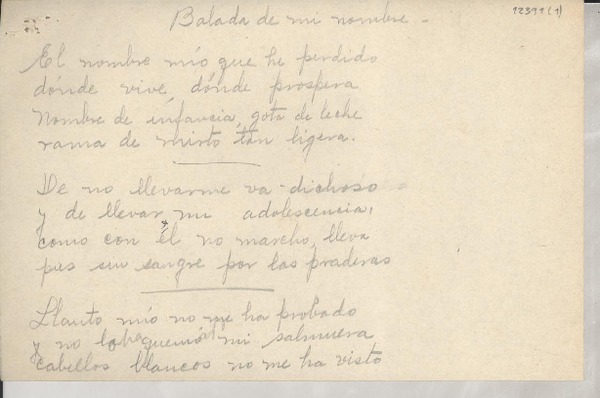 12391(1)
Balada de mi nombre -
El nombre mío que he perdido
dónde vive, dónde prospera
Nombre de infancia, gota de leche
rama de mirto tan ligera.
De no llevarme va dichoso
y de llevar mi adolescencia,
como con él no marcho, lleva
pies sin sangre por las praderas
Llanto mío no me ha probado
y no lo ha quemado mi salmuera
cabellos blancos no me ha visto